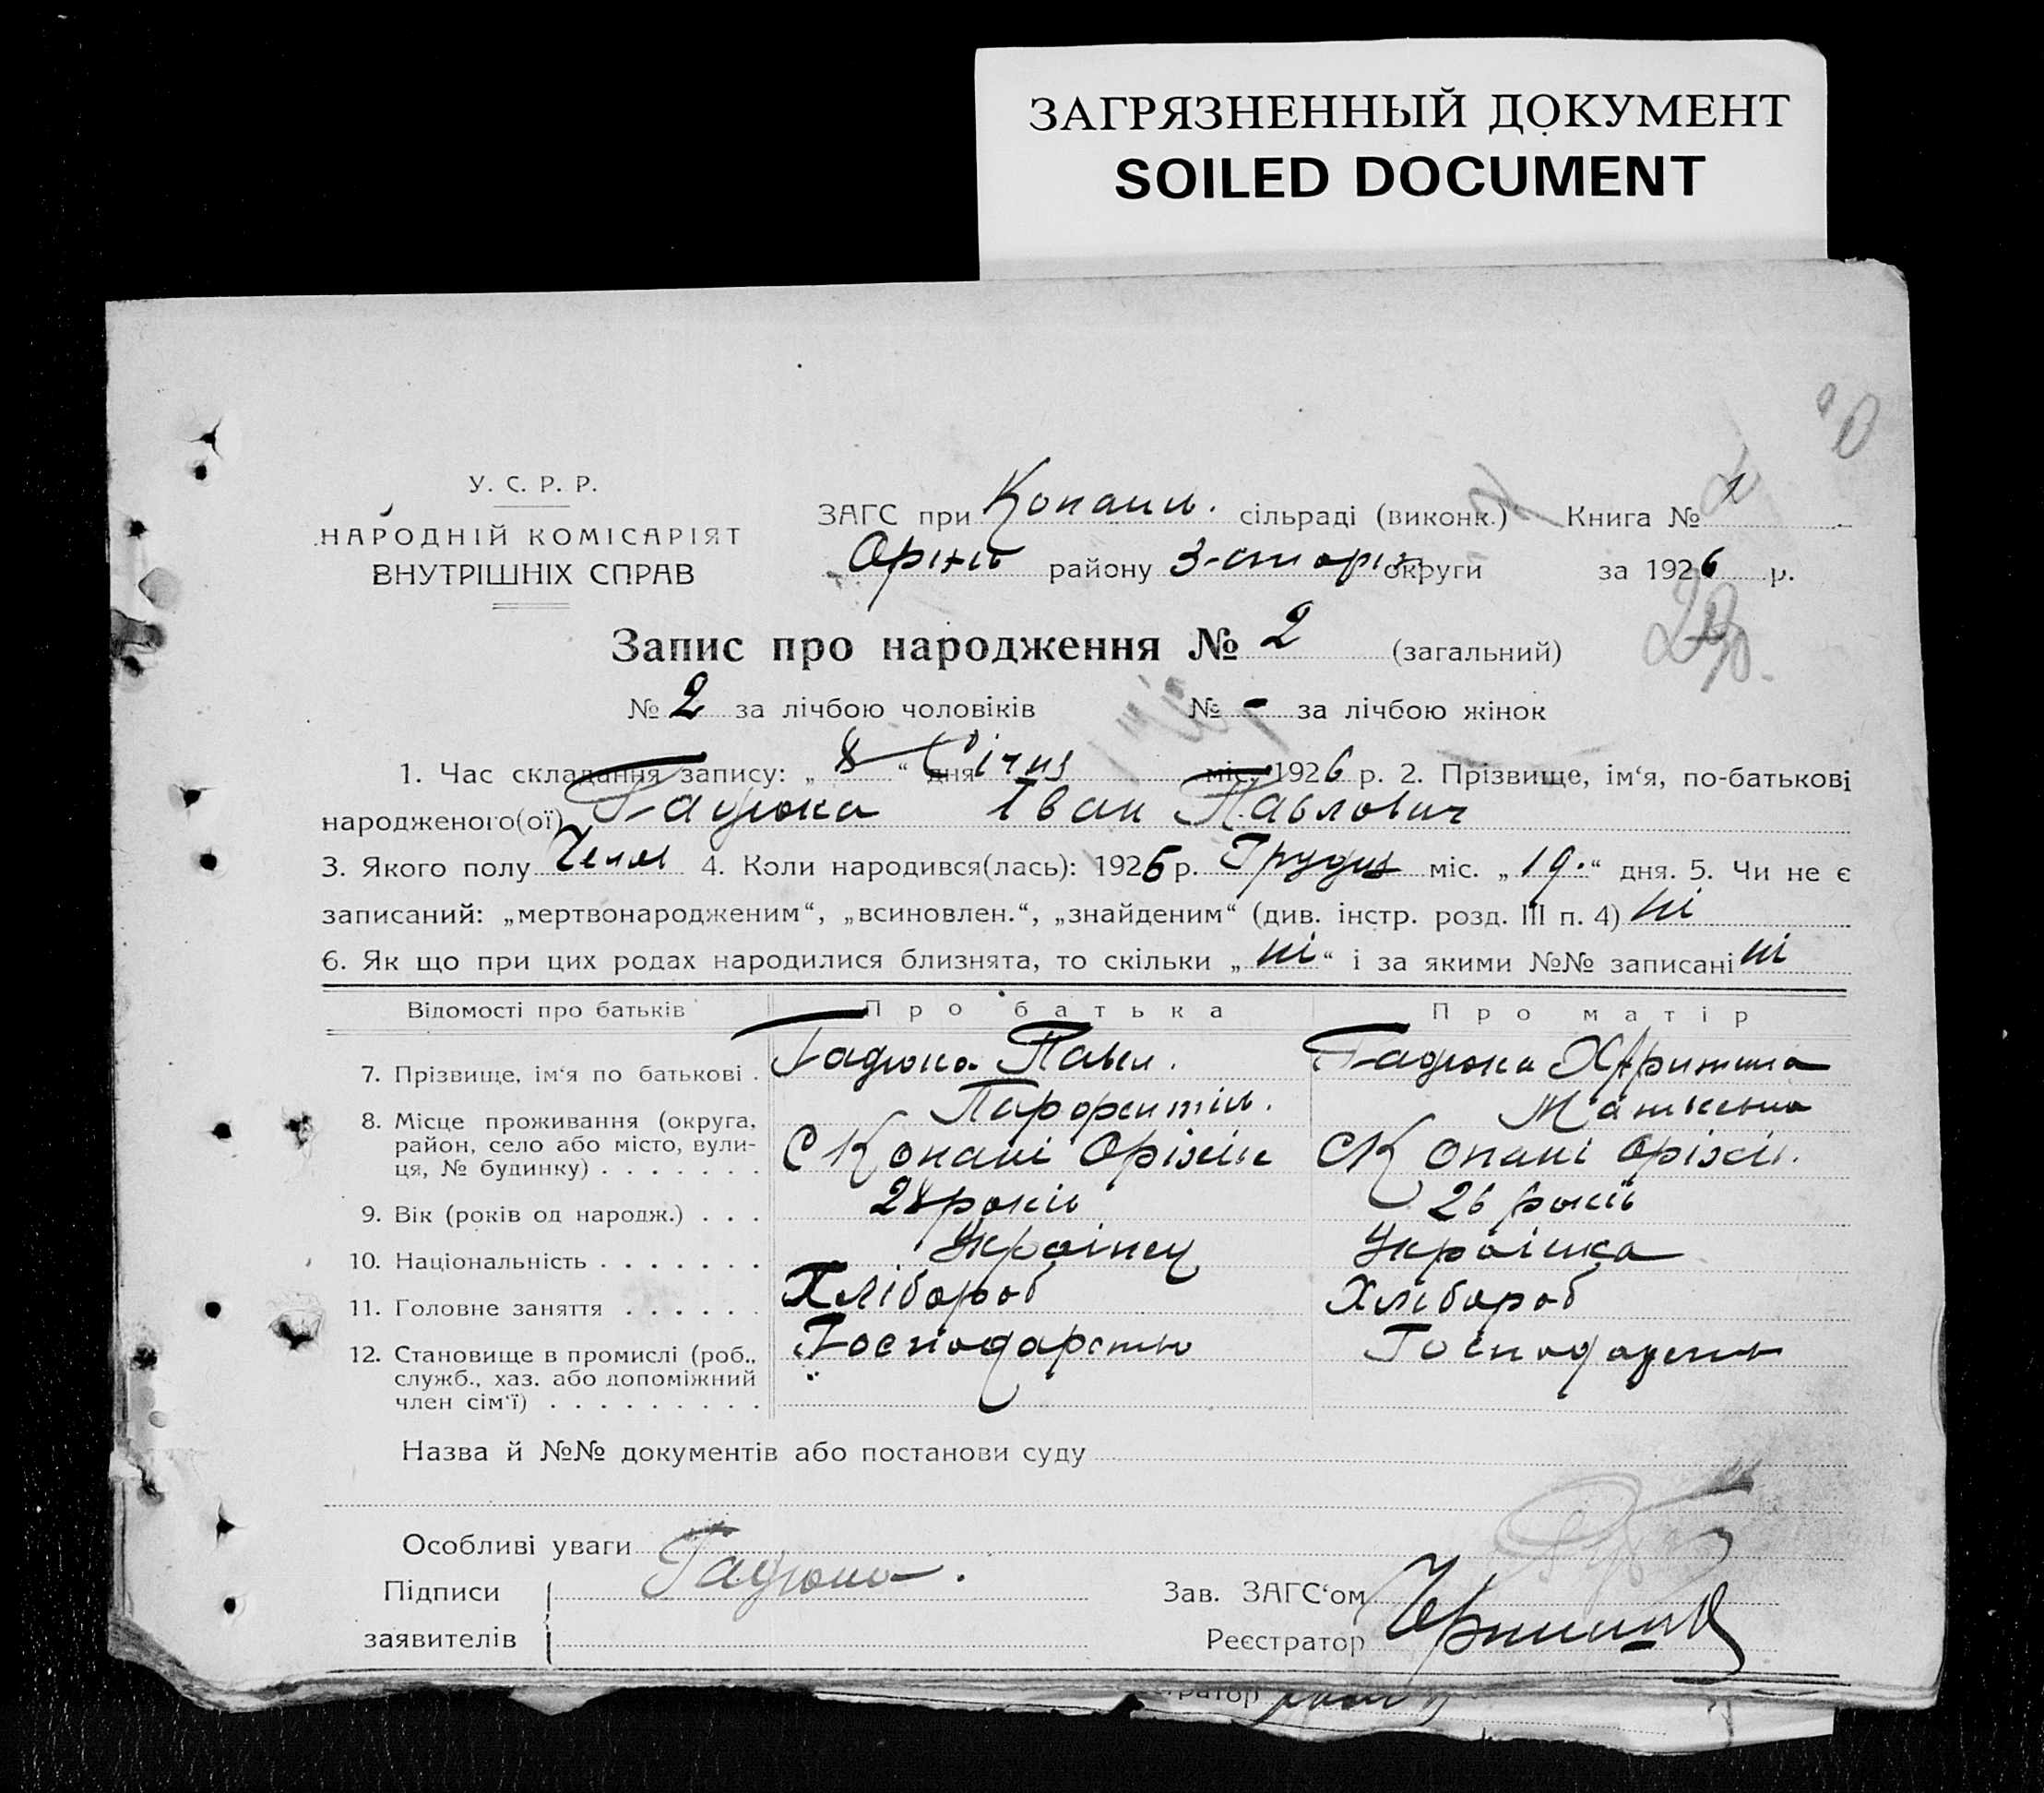 ЗАГРЯЗНЕННЫЙ ДОКУМЕНТ
SOILED DOCUMENT
У. С. Р. Р.
НАРОДНІЙ КОМІСАРІЯТ
ВНУТРІШНІХ СПРАВ
ЗАГС при Копани. сільраді (виконк.) Книга № 1
Оріхів району З-жоріз округи за 1926 р.
Запис про народження № 2 (загальний)
№ 2 за лічбою чоловіків № - за лічбою жінок
1. Час складання запису: „ 8 “ дня Січня міс. 1926 р. 2. Прізвище, ім‘я, по-батькові
народженого(ої) Гадюка Іван Павлович
3. Якого полу Челов 4. Коли народився(лась): 1925 р. Грудня міс. „ 19. “ дня. 5. Чи не є
записаний: „мертвонародженим“, „всиновлен.“, „знайденим“ (див. інстр. розд. III п. 4) ні
6. Як що при цих родах народилися близнята, то скільки „ ні “ і за якими №№ записані ні
Відомості про батьків Про батька Про матір
7. Прізвище, ім‘я по батькові . Гадюка Павл. Гадюка
8. Місце проживання (округа,
район, село або місто, вули-
ця, № будинку) . . . . . . . С Копані Оріхів С Копані Оріхів.
9. Вік (років од народж.) . . . 28 років 26 років
10. Національність . . . . . . . Українец Українка
11. Головне заняття . . . . . . Хлібороб Хлібороб
12. Становище в промислі (роб.,
служб., хаз. або допоміжний
член сім‘ї) . . . . . . . . .
Назва й №№ документів або постанови суду
Особливі уваги
Підписи Гадюка.
заявителів
Зав. ЗАГС‘ом
Реєстратор